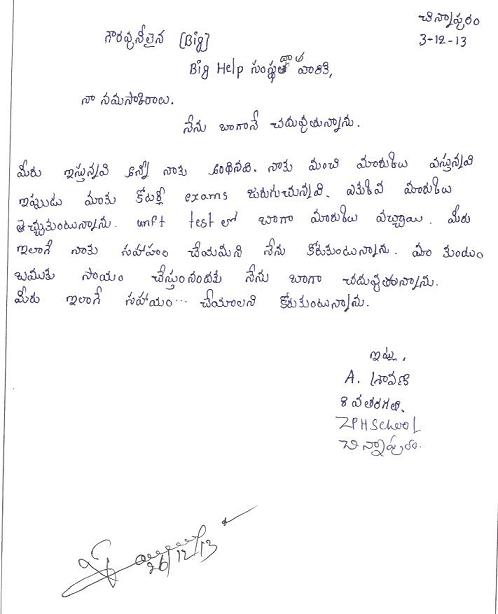 చిన్నాపురం
3-12-13
గౌరవ్వనీలైన [Big]
Big Help సంస్థ దాత వారికి,
నా నమస్కారాలు.
నేను బాగానే చదువుతున్నాను.
మీరు ఇస్తున్నవి అన్నీ నాకు అందినవి. నాకు మంచి మార్కులు వస్తున్నవి
ఇప్పుడు మాకు exams జరుగుచున్నవి. ఎక్కువ మార్కులు
తెచ్చుకుంటున్నాను. unit test లో బాగా మార్కులు వచ్చాయి. మీరు
ఇలాగే నాకు సహాయం చేయమని నేను కోరుకుంటున్నాను. మా కుటుం
బముకు సాయం చేస్తునందుకు నేను బాగా చదువుతున్నాను.
మీరు ఇలాగే సహాయం... చేయాలని కోరుకుంటున్నాను.
ఇట్లు,
A. శ్రావణి
8 వ తరగతి.
ZPHSchool
చిన్నాపురం.
26/12/13